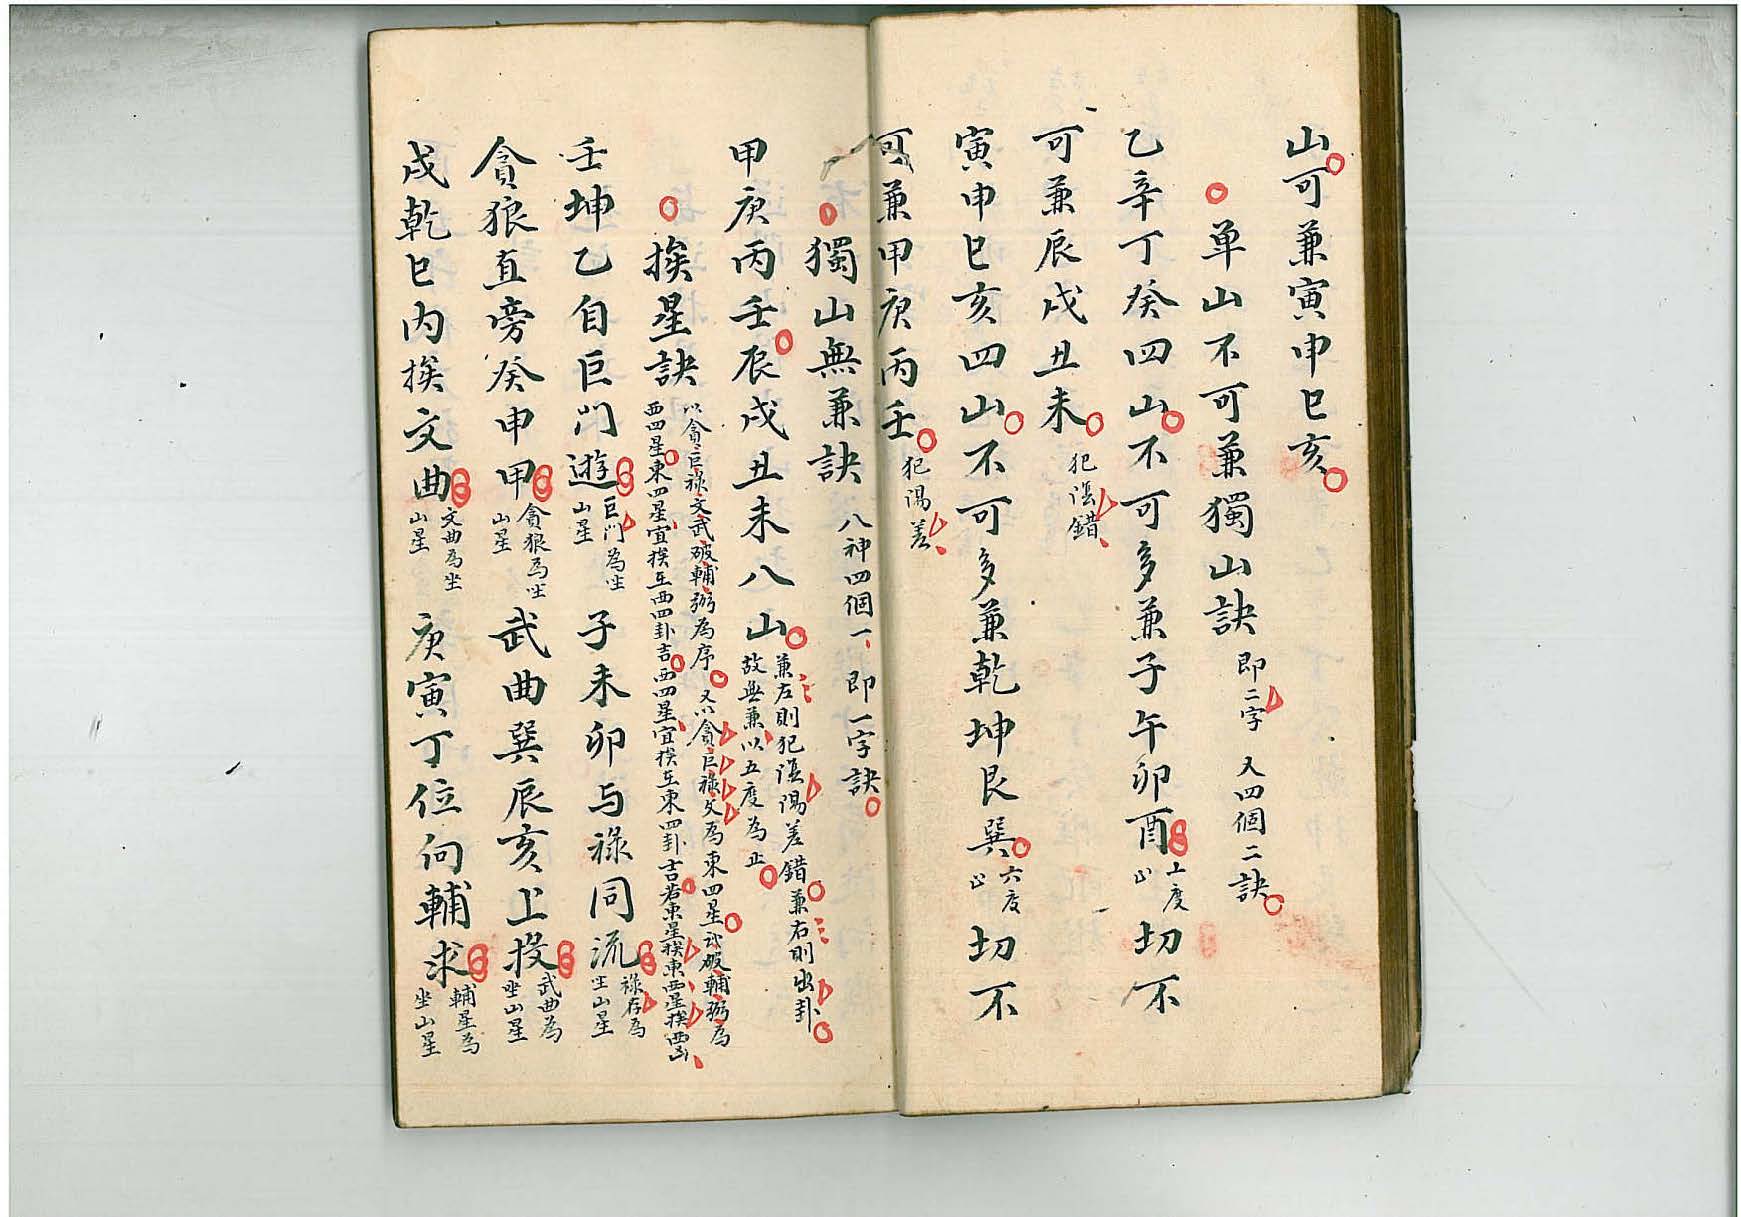 山可兼寅申巳亥
单山不可兼獨山訣 即二字 又四個二訣
乙辛丁癸四山不可多兼子午卯酉 上度止 切不
可兼辰戌丑未 犯陰錯
寅申巳亥四山不可多兼乾坤艮巽 六度止 切不
可兼甲庚丙壬 犯陽差
獨山無兼訣 八神四個一即一字訣
甲庚丙壬辰戌丑未八山 兼左則犯陰陽差錯兼右則出卦
故無兼以五度為止
挨星訣 以貪巨祿文武破輔弼為序又以貪巨祿文為東四星武破輔弼為
西四星東四星宜挨在西四卦吉西四星宜挨在東四卦吉若東星挨東西星挨西凶
壬坤乙自巨门遊 巨门為坐山星 子未卯与祿同流 祿存為坐山星
貪狼直旁癸申甲 貪狼為坐山星 武曲巽辰亥上投 武曲為坐山星
戌乾巳内挨文曲 文曲為坐山星 庚寅丁位向輔求 輔星為坐山星